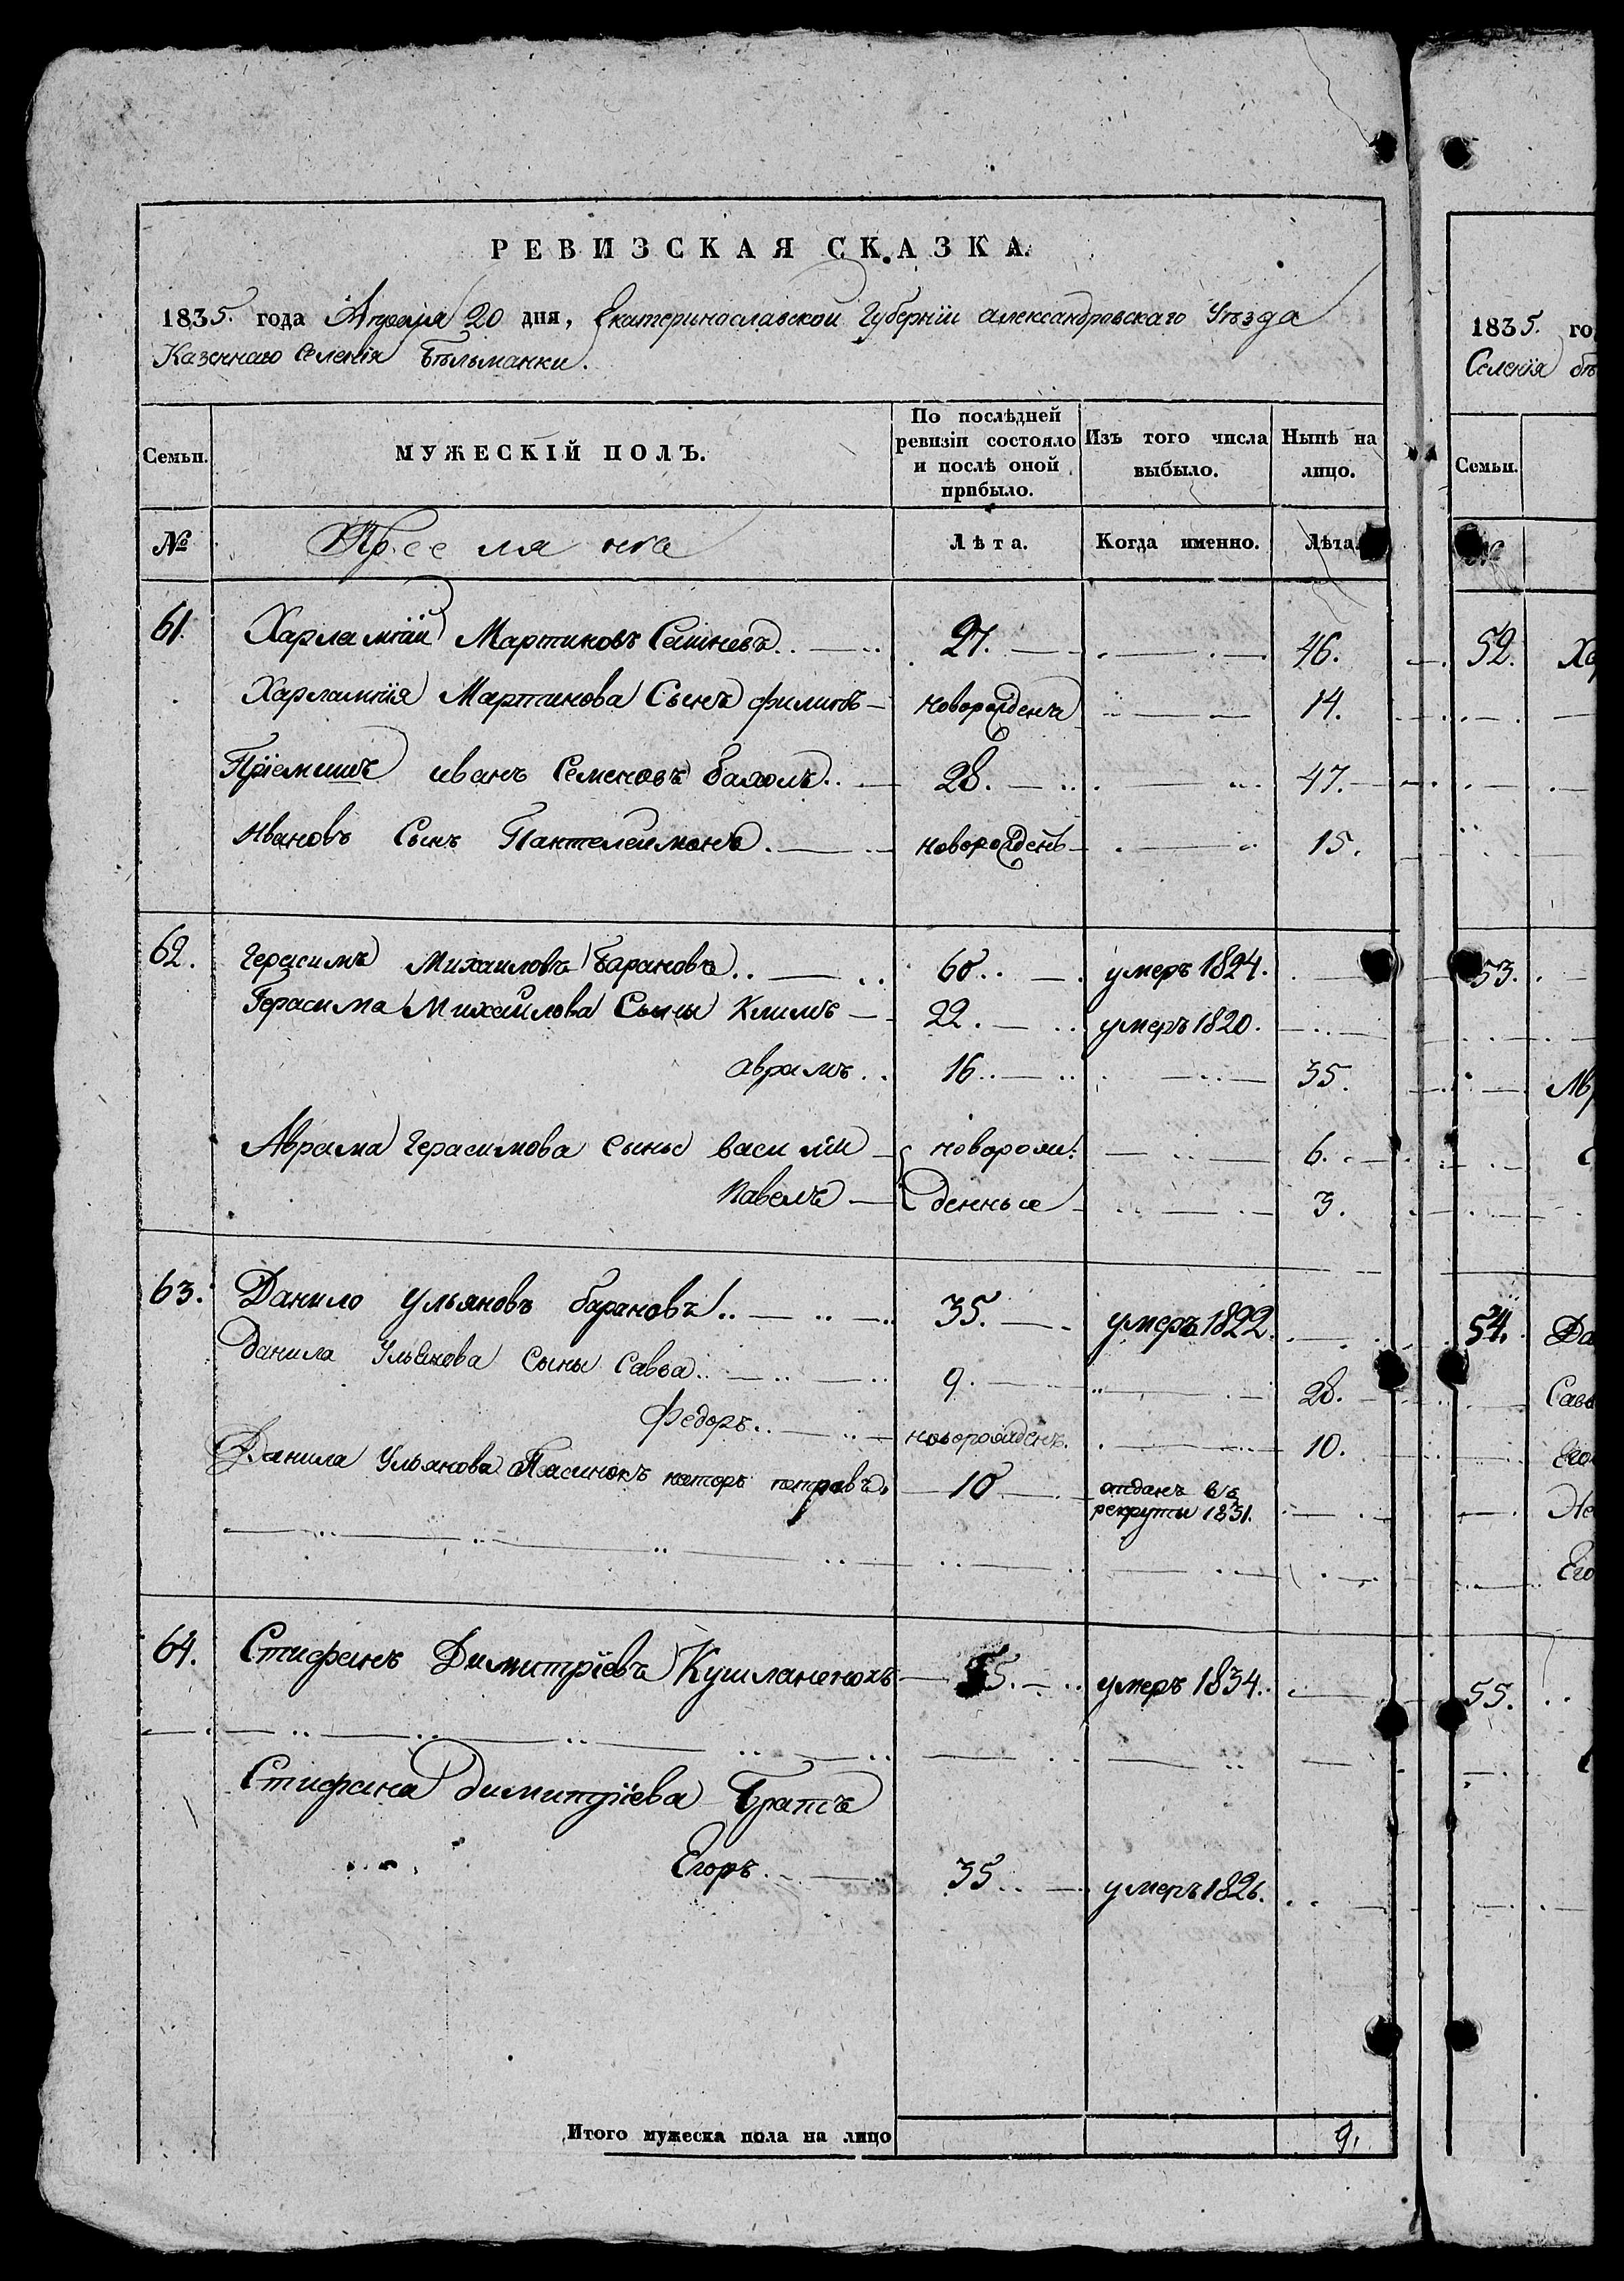 РЕВИЗСКАЯ СКАЗКА.
1835. года Апреля 20 дня, Екатеринославской Губернїи александровскаго Уѣзда
Казеннаго Селенїя Бѣльманки.
Семьи. МУЖЕСКІЙ ПОЛЪ. По послѣдней ревизіи состояло и послѣ оной прибыло. Изъ того числа выбыло. Нынѣ на лицо.
№ Лѣта. Когда именно. Лѣта
61. Харлампїй Мартиновъ 27. 46.
Харлампїя Мартинова Сынъ филипъ новорожденъ 14.
Прїемишъ иванъ Семеновъ 28. 47.
Ивановъ Сынъ Пантелеимонъ новорожденъ 15.
62. Герасимъ Михаиловъ Барановъ 60. умеръ 1824.
Герасима Михайлова Сыны Климъ 22. умеръ 1820.
аврамъ 16 35.
Аврама Герасимова сыны васи лїи новорож: 6.
Павелъ денные 3.
63. Данило Ульяновъ барановъ 35. умеръ 1822.
Данила Ульянова Сыны Савва 9. 28.
Федоръ новорожденъ. 10.
Данила Ульянова Пасинокъ петровъ 10 отданъ въ
рекруты 1831.
64. Стифанъ Димитрїевъ умеръ 1834.
Стифана димитрїева Братъ
Егоръ 35 умеръ 1826.
Итого мужеска пола на лицо 9.
1835. го
Селенїя бѣ
Семьи.
52. Ха
53.
Ав
54. Да
Савв
Его
Не
Его
55.